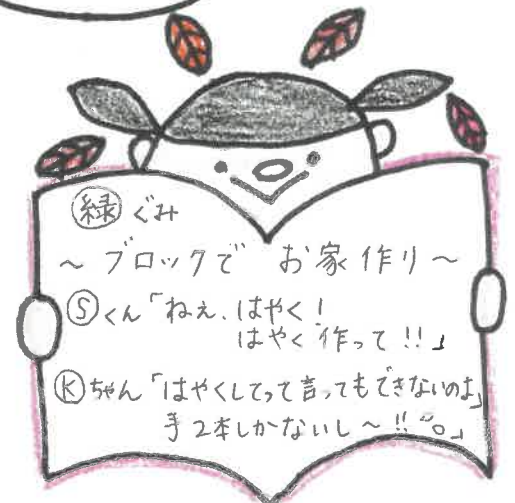 緑ぐみ
～ブロックで お家作り～
Ⓢくん「ねえ、はやく!
はやく作って!!」
Ⓚちゃん「はやくしてって言ってもできないのよ、
手2本しかないし～!!」